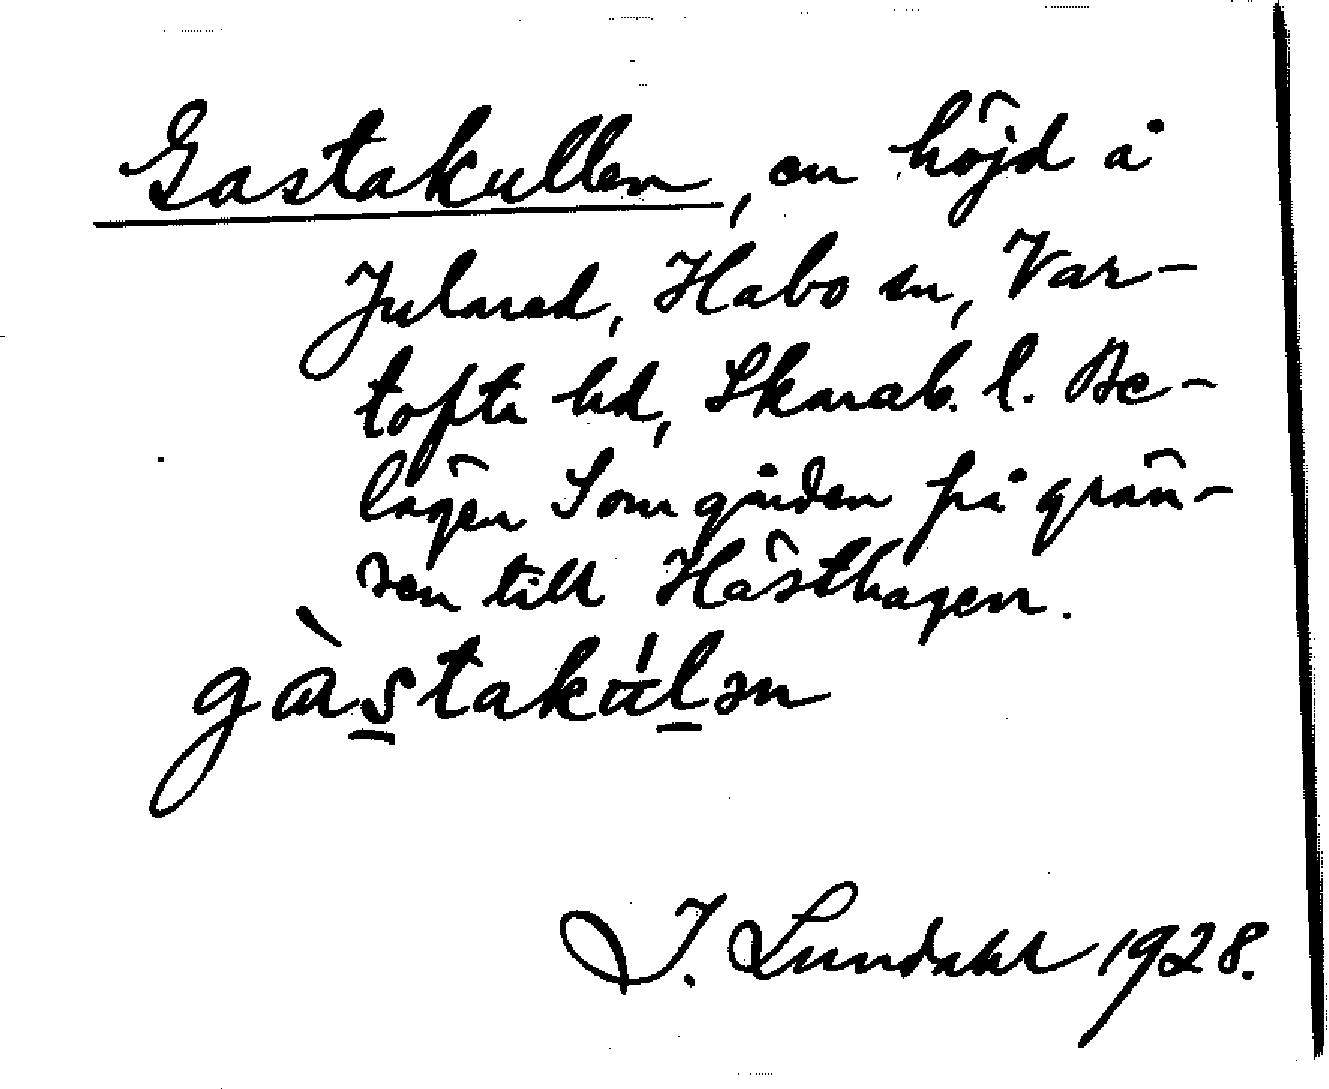 Gastakullen, en höjd å
Julared, Habo sn, Var-
tofta hd, Skarab. l. Be-
lägen S om gården på grän-
sen till Hästhagen.
gàstakúlən
I. Lundahl 1928.